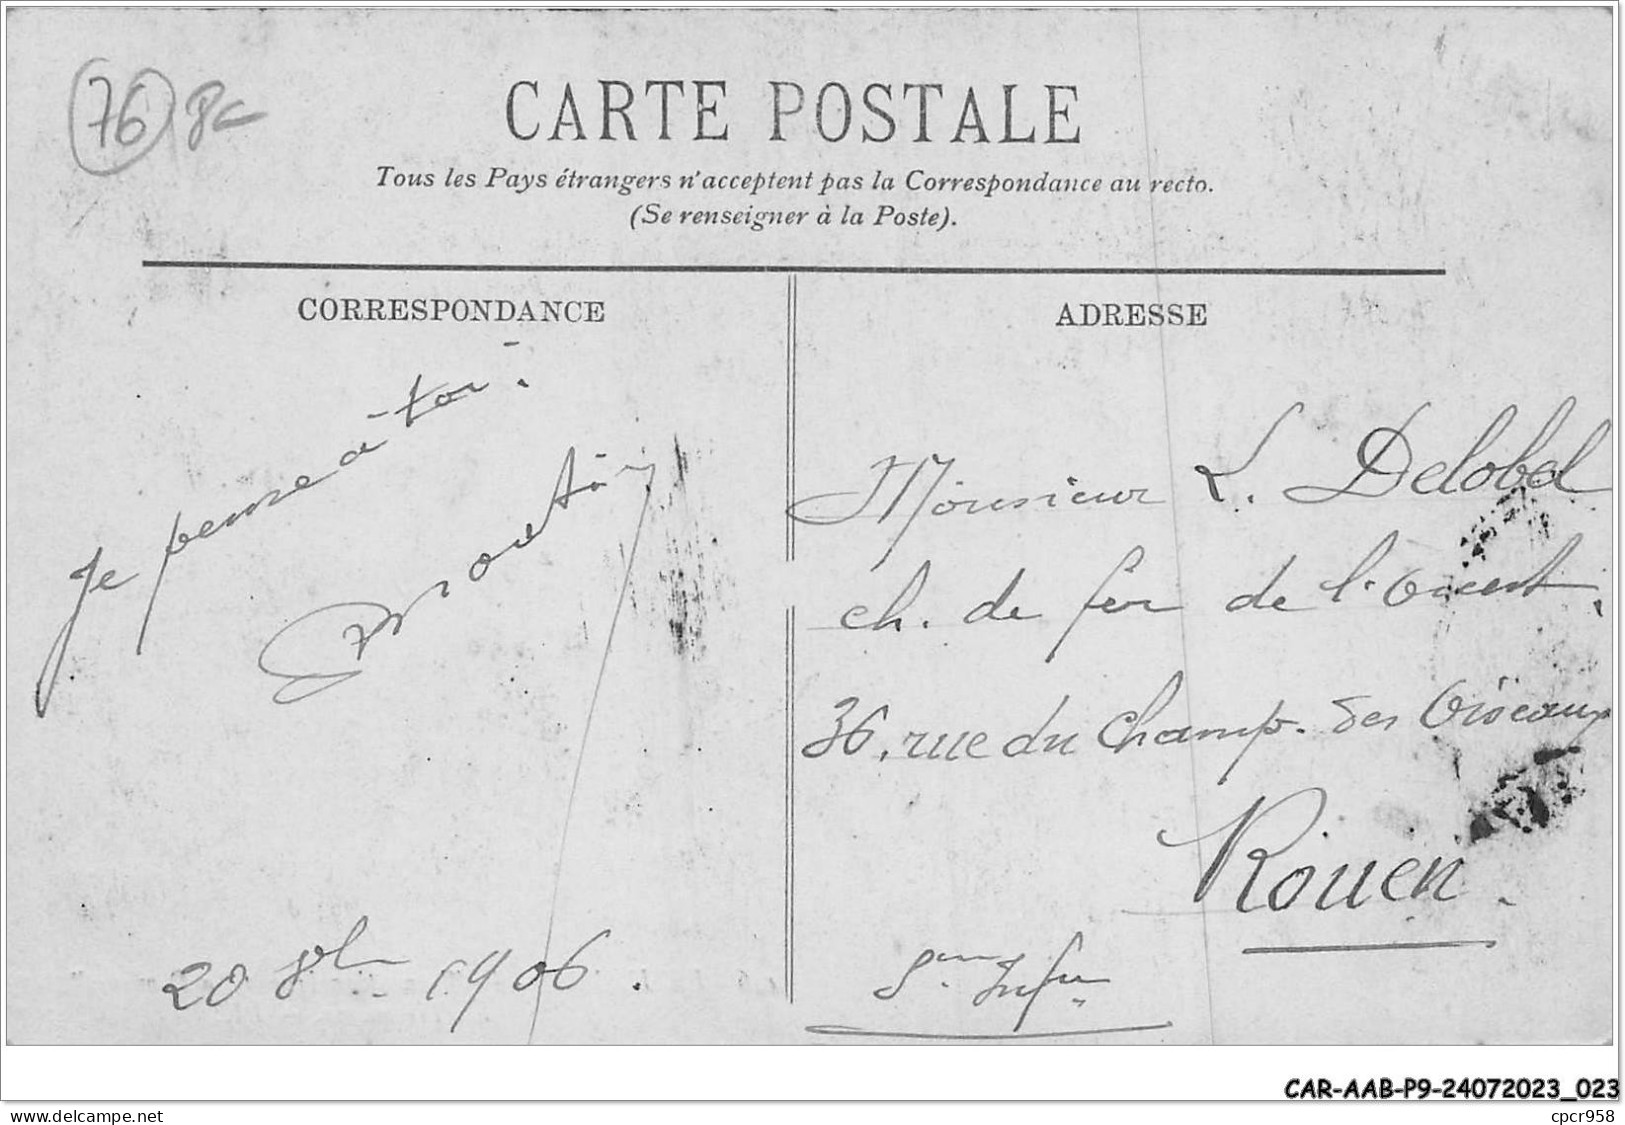 76 8c
CARTE POSTALE
Tous les Pays étrangers n'acceptent pas la Correspondance au recto.
(Se renseigner à la Poste).
CORRESPONDANCE
Je pense à toi.
20 8bre 1906.
ADRESSE
Monsieur L. Delobel
ch. de fer de l'Ouest.
36, rue du Champ. des Oiseaux
Rouen.
Sne Infre
CAR-AAB-P9-24072023_023
www.delcampe.net
cpcr958